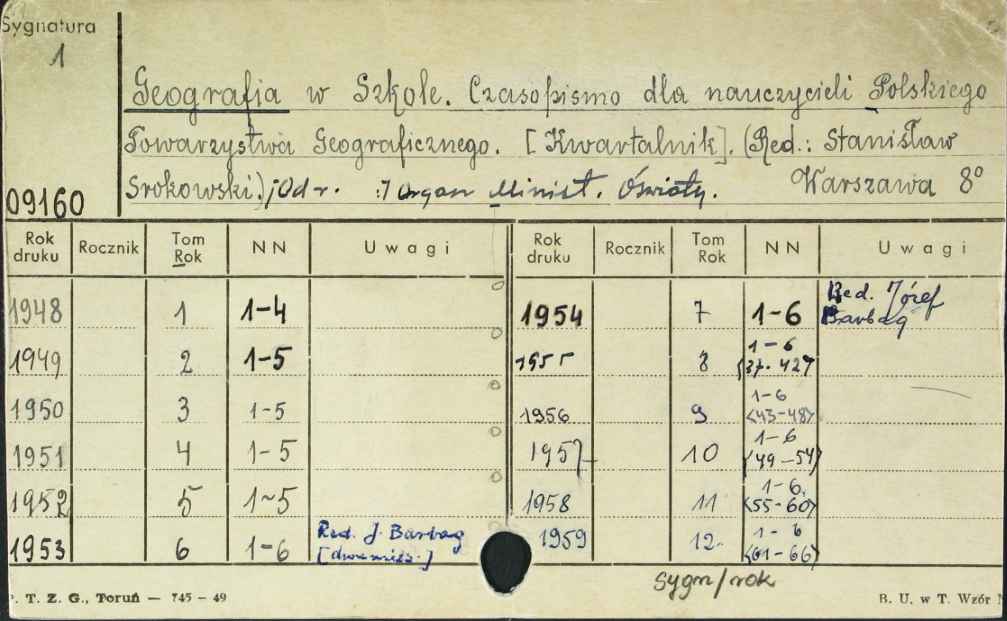 Sygnatura
1
Geografia w Szkole. Czasopismo dla nauczycieli Polskiego
Towarzystwa Geograficznego. [Kwartalnik]. (Red.: Stanisław
Srokowski.); Od r. : Organ Minist. Oświaty. Warszawa 8°
09160
Rok druku Rocznik Tom Rok NN Uwagi Rok druku Rocznik Tom Rok NN Uwagi
1948 1 1-4 1954 7 1-6 Red. Józef Barbag
1949 2 1-5 1955 8 1-6 <37-42>
1950 3 1-5 1956 9 1-6 <43-48>
1951 4 1-5 1957 10 1-6 <49-54>
1952 5 1-5 1958 11 1-6. <55-60>
1953 6 1-6 Red. J. Barbag [dwumies.] 1959 12. 1-6 <61-66>
sygn/rok
P. T. Z. G., Toruń — 745 - 49 B. U. w T. Wzór